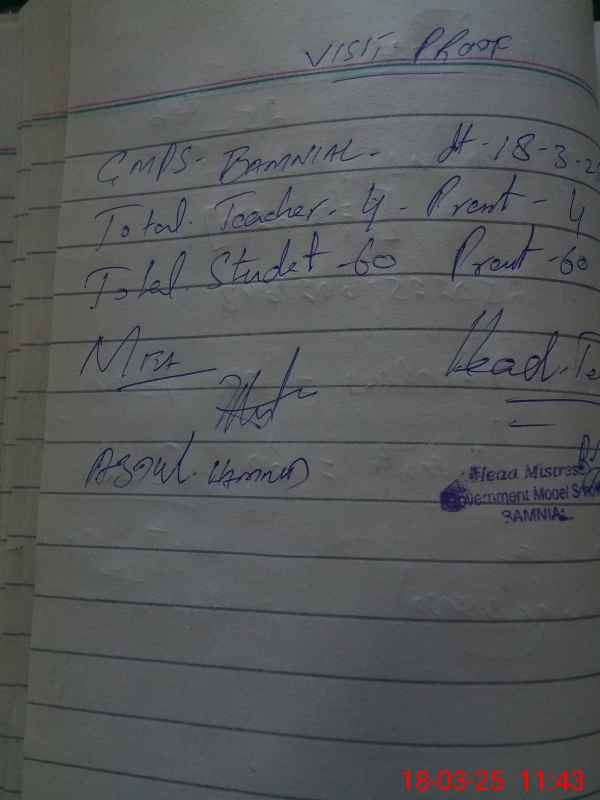 VISIT PROOF
GMPS- BAMNIAL- dt-18-3-2
Total Teacher-4- Prsent-4
Total Studet-60 Prsent-60
MEA Head.Te
ABDUL HAMEED
Head Mistress
Government Model S
BAMNIAL
18-03-25 11:43